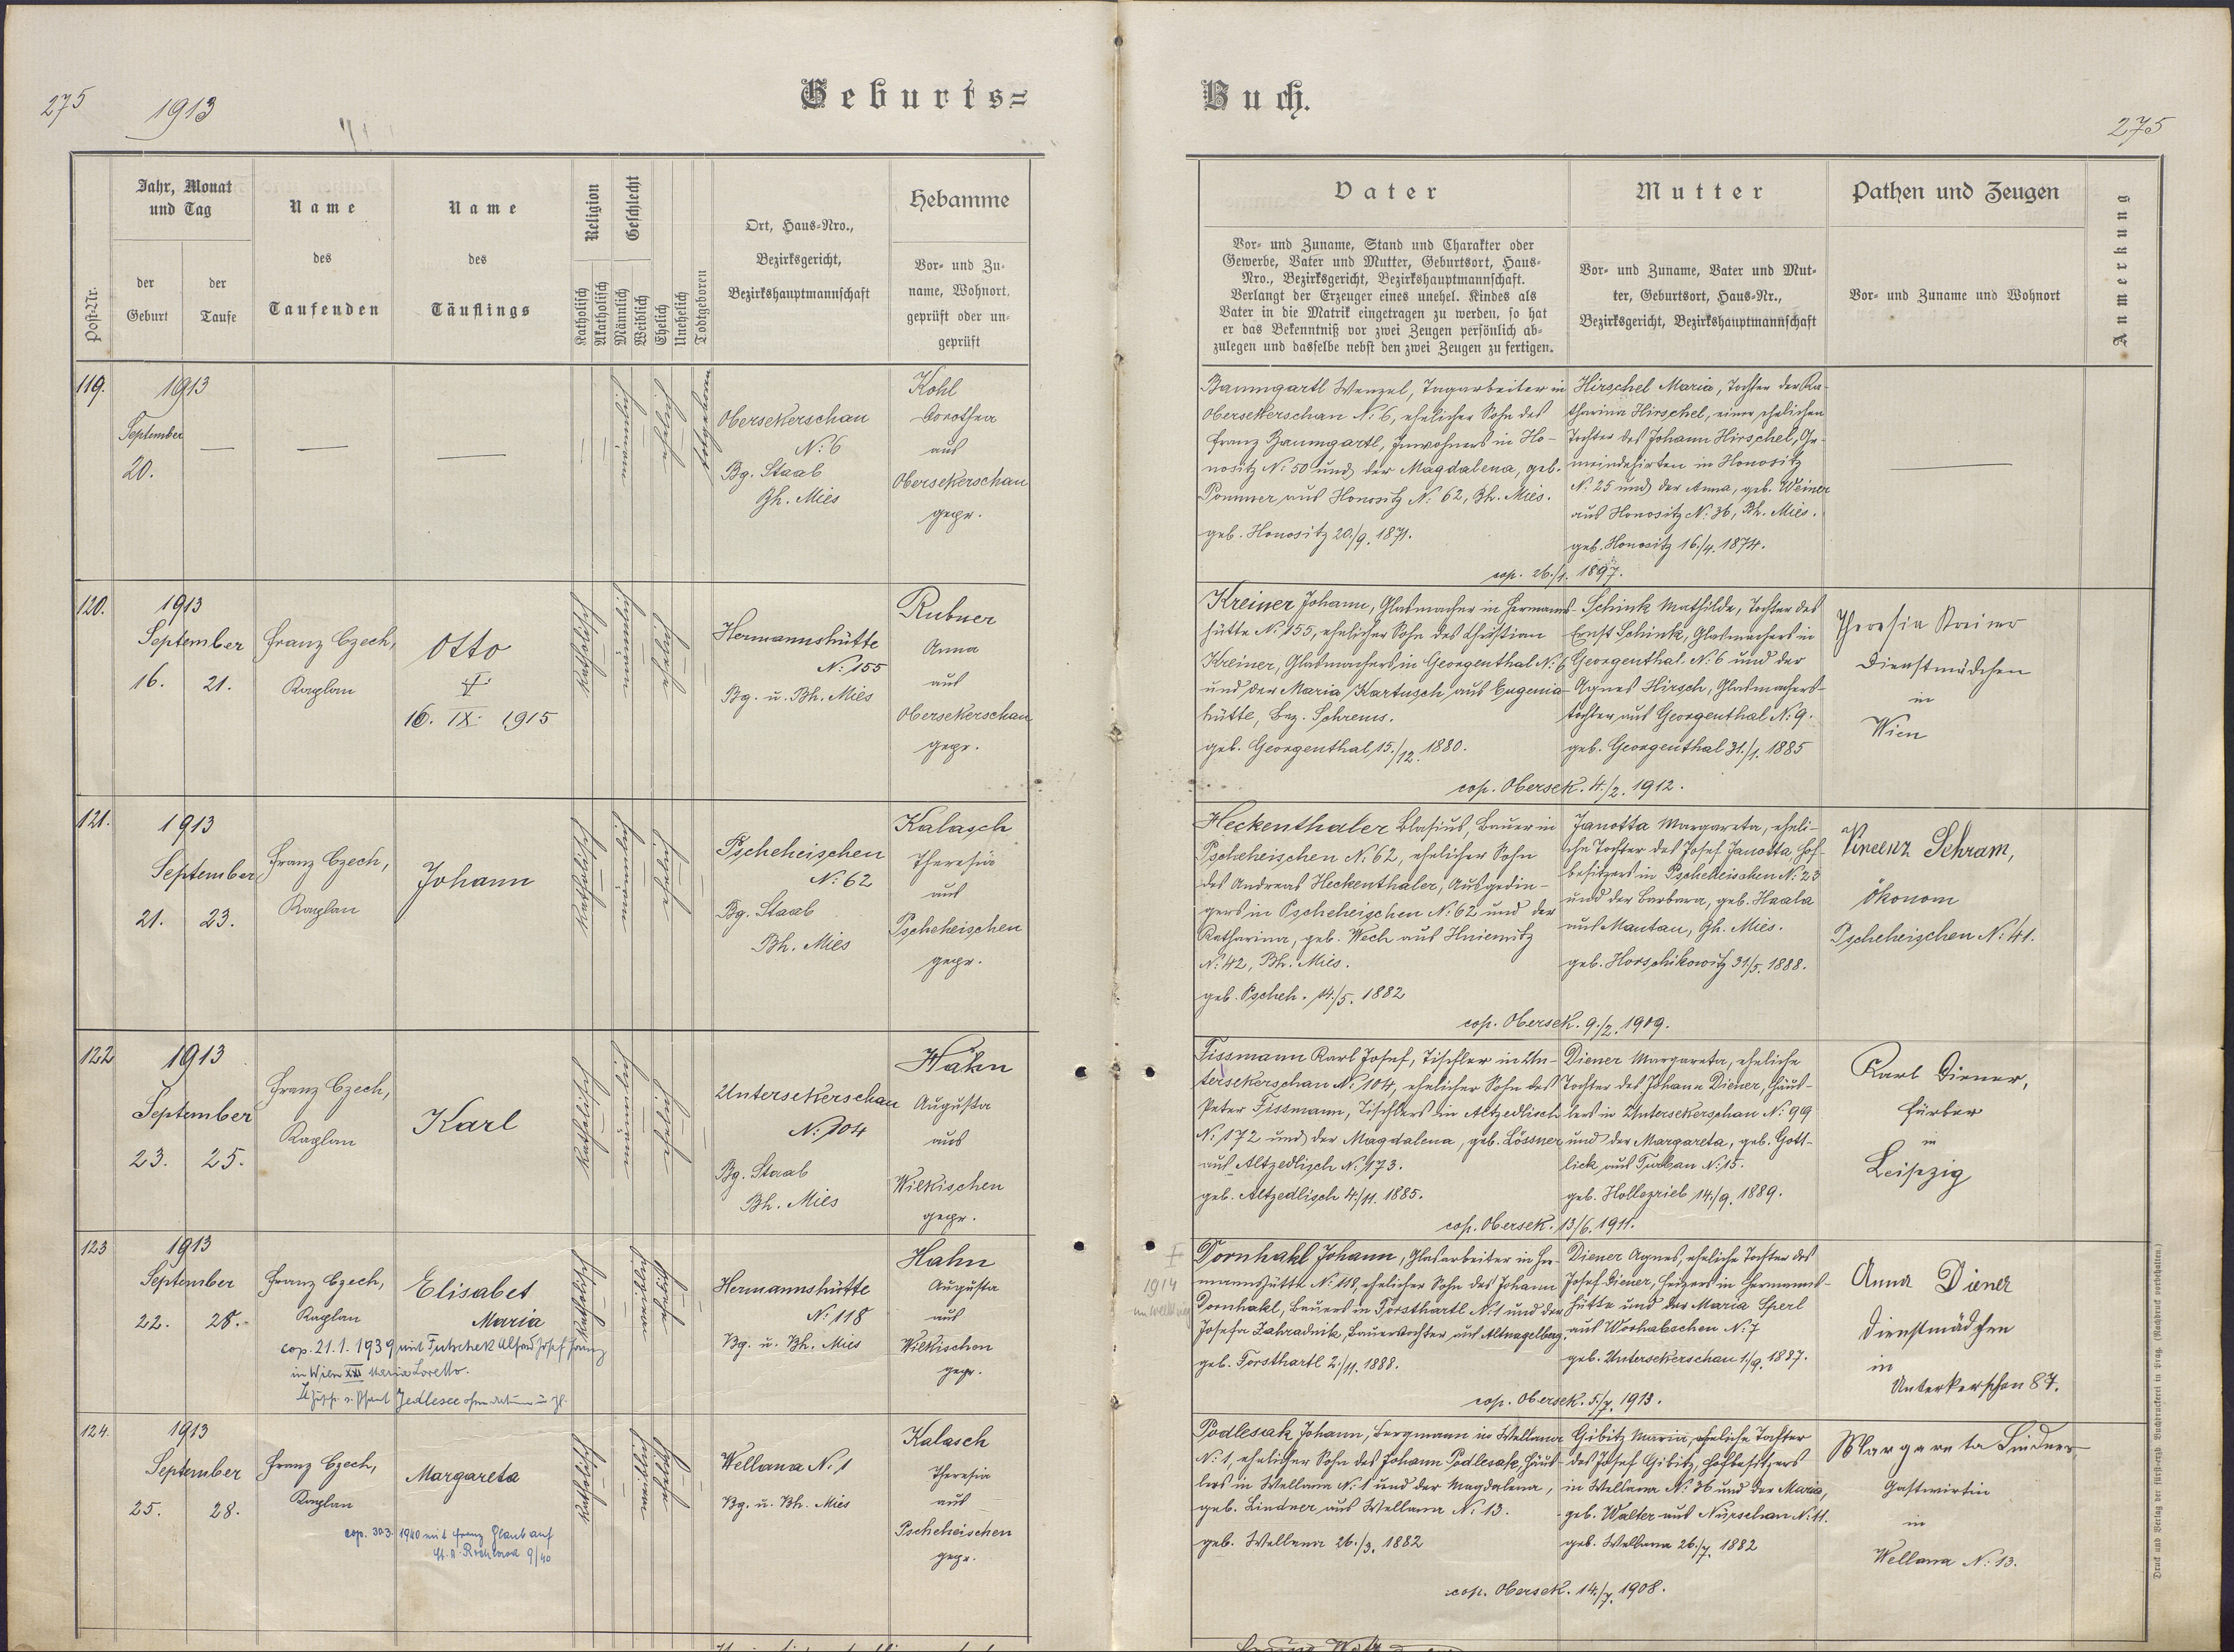 275
1913
Geburts=
Buch.
275
Post-Nr.
Jahr, Monat
und Tag
der
Geburt
der
Taufe
Name
des
Taufenden
Name
des
Täuflings
Religion
Katholisch
Akatholisch
Geschlecht
Männlich
Weiblich
Ehelich
Unehelich
Todtgeboren
Ort, Haus-Nro.,
Bezirksgericht,
Bezirkshauptmannschaft
Hebamme
Vor- und Zu-
name, Wohnort,
geprüft oder un-
geprüft
Vater
Vor- und Zuname, Stand und Charakter oder
Gewerbe, Vater und Mutter, Geburtsort, Haus-
Nro., Bezirksgericht, Bezirkshauptmannschaft.
Verlangt der Erzeuger eines unehel. Kindes als
Vater in die Matrik eingetragen zu werden, so hat
er das Bekenntniß vor zwei Zeugen persönlich ab-
zulegen und dasselbe nebst den zwei Zeugen zu fertigen.
Mutter
Vor- und Zuname, Vater und Mut-
ter, Geburtsort, Haus-Nr.,
Bezirksgericht, Bezirkshauptmannschaft
Pathen und Zeugen
Vor- und Zuname und Wohnort
Anmerkung
119.
1913
September
20.
—
—
—
männlich
ehelich
totgeboren
Obersekerschan
N: 6
Bg. Staab
Bh. Mies
Kohl
Dorothea
aus
Obersekerschan
gepr.
Baumgartl Wenzel, Tagarbeiter in
Obersekerschan N: 6, ehelicher Sohn des
Franz Baumgartl, Inwohners in Ho-
nositz N: 50 und der Magdalena, geb.
Pommer aus Honositz N: 62, Bh. Mies.
geb. Honositz 20./9. 1871.
Hirschel Maria, Tochter der Ka-
tharina Hirschel, einer ehelichen
Tochter des Johann Hirschel, Ge-
meindehirten in Honositz
N: 25 und der Anna, geb. Weiner
aus Honositz N: 36, Bh. Mies.
geb. Honositz 16./4. 1874.
cop. 26./1. 1897.
—
120.
1913
September
16. 21.
Franz Czech,
Kaplan
Otto
†
16. IX. 1915
katholisch
männlich
ehelich
Hermannshütte
N: 155
Bg. u. Bh. Mies
Rubner
Anna
aus
Obersekerschan
gepr.
Kreiner Johann, Glasmacher in Hermanns-
hütte N: 155, ehelicher Sohn des Christian
Kreiner, Glasmachers in Georgenthal N: 6
und der Maria Kartusch aus Eugenia-
hütte, Bez. Schrems.
geb. Georgenthal 15./12. 1880.
Schink Mathilde, Tochter des
Ernst Schink, Glasmachers in
Georgenthal N: 6 und der
Agnes Hirsch, Glasmachers-
tochter aus Georgenthal N: 9.
geb. Georgenthal 31./1. 1885
cop. Obersek. 4./2. 1912.
Theresia Kreiner
Dienstmädchen
in
Wien
121.
1913
September
21. 23.
Franz Czech,
Kaplan
Johann
katholisch
männlich
ehelich
Pscheheischen
N: 62
Bg. Staab
Bh. Mies
Kalasch
Theresia
aus
Pscheheischen
gepr.
Heckenthaler Blasius, Bauer in
Pscheheischen N: 62, ehelicher Sohn
des Andreas Heckenthaler, Ausgedin-
gers in Pscheheischen N: 62 und der
Katharina, geb. Wech aus Hniemitz
N: 42, Bh. Mies.
geb. Pscheh. 14./5. 1882
Janotta Margareta, eheli-
che Tochter des Josef Janotta Hof-
besitzers in Pscheheischen N: 23
und der Barbara, geb. Haala
aus Mantau, Bh. Mies.
geb. Horschikowitz 31./5. 1888.
cop. Obersek. 9./2. 1909.
Vincenz Schram,
Ökonom
Pscheheischen N: 41.
122
1913
September
23. 25.
Franz Czech,
Kaplan
Karl
katholisch
männlich
ehelich
Untersekerschan
N: 104
Bg. Staab
Bh. Mies
Hahn
Augusta
aus
Wilkischen
gepr.
Fissmann Karl Josef, Tischler in Un-
tersekerschan N: 104, ehelicher Sohn des
Peter Fissmann, Tischlers in Altzedlisch
N: 172 und der Magdalena, geb. Lössner
aus Altzedlisch N: 173.
geb. Altzedlisch 4./11. 1885.
Diener Margareta, eheliche
Tochter des Johann Diener, Häus-
lers in Untersekerschan N: 99
und der Margareta, geb. Gott-
lick aus Turban N: 15.
geb. Hollezrieb 14./9. 1889.
cop. Obersek. 13./6. 1911.
Karl Diener,
Färber
in
Leipzig
123
1913
September
22. 28.
Franz Czech,
Kaplan
Elisabet
Maria
cop. 21. 1. 1939 mit Futschek Alfred Josef Franz
in Wien XXI Maria Loretto.
Jedlesee
katholisch
weiblich
ehelich
Hermannshütte
N: 118
Bg. u. Bh. Mies
Hahn
Augusta
aus
Wilkischen
gepr.
†
1914
Dornhakl Johann, Glasarbeiter in Her-
mannshütte N: 118, ehelicher Sohn des Johann
Dornhakl, Bauers in Forsthartl N: 1 und der
Josefa Zahradnik, Bauerstochter aus Altnagelberg.
geb. Forsthartl 2./11. 1888.
Diener Agnes, eheliche Tochter des
Josef Diener, Heizers in Hermanns-
hütte und der Maria Sperl
aus Worhabschen N: 7
geb. Untersekerschan 1./9. 1887.
cop. Obersek. 5./7. 1913.
Anna Diener
Dienstmädchen
in
Unterkerschan 87.
124.
1913
September
25. 28.
Franz Czech,
Kaplan
Margareta
cop. 30.3. 1940 mit Franz
9/40
katholisch
weiblich
ehelich
Wellana N: 1
Bg. u. Bh. Mies
Kalasch
Theresia
aus
Pscheheischen
gepr.
Podlesak Johann, Bergmann in Wellana
N: 1, ehelicher Sohn des Johann Podlesak, Häus-
lers in Wellana N: 1 und der Magdalena,
geb. Lindner aus Wellana N: 13.
geb. Wellana 26./3. 1882
Gibitz Maria, eheliche Tochter
des Josef Gibitz, Hofbesitzers
in Wellana N: 36 und der Maria,
geb. Walter aus Nürschan N: 11.
geb. Wellana 26./7. 1882
cop. Obersek. 14./7. 1908.
Margareta Lindner
Gastwirtin
in
Wellana N: 13.
Druck und Verlag der fürst-erzb. Buchdruckerei in Prag. (Nachdruck vorbehalten.)